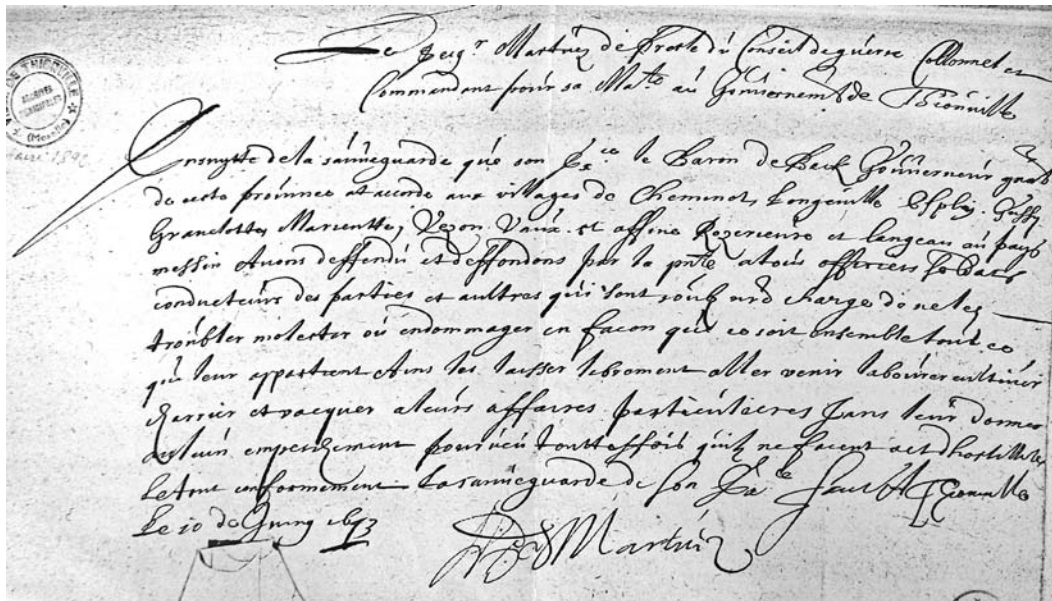 Le Seigr Martinez de        du Conseil de guerre Collonnel et
Commandant pour sa Maté au Gouvernemt de Thionville
THIONVILLE
ARCHIVES
MUNICIPALES
(Moselle)
1892
Ensuytte de la sauveguarde que son Exce le Baron de Beck Gouverneur gnal
de ceste province at accordé aux villages de Cheminot, Longeville
Gravelotte, Vezon, Vaux et                et                au pays
messin Avons deffendu et deffendons par la pnte a tous officiers soldats
conducteurs des parties et aultres qui sont soubz nre charge de ne les
troubler molester ou endommager en facon que ce soit ensemble tout ce
qui leur appartient Ains les laisser librement aller venir labourer cultiver
charrier et vacquer a leurs affaires particulieres sans leur donner
aulcun empeschement pourveu touttesfois quilz ne facent act d'hostillité
Le tout conformement La sauveguarde de son Exce Faict A Thionville
Le 10 de Juing
Martinez